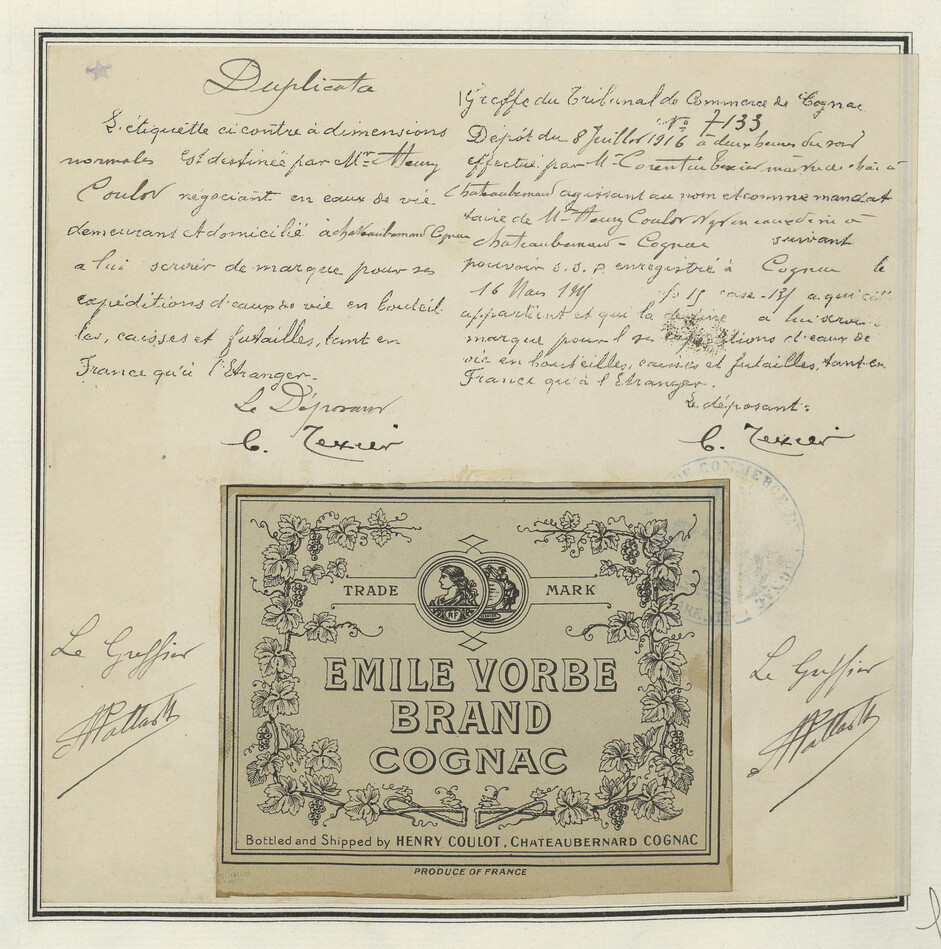 Duplicata
L'étiquette ci contre à dimensions
normales est destinée par Mr Henry
Coulot négociant en eaux de vie
demeurant et domicilié à chateaubernard Cognac
a lui servir de marque pour ses
expéditions d'eaux de vie en bouteil
les, caisses et futailles, tant en
France qu'à l'Etranger.
Le Déposant
C. Texier
Greffe du Tribunal de Commerce de Cognac
No 7133
Depôt du 8 Juillet 1916 à deux heures du soir
effectué par M. Corentin Texier maitre de chai à
Chateaubernard agissant au nom et comme mandat
taire de Mr Henry Coulot Ngt en eaux de vie à
chateaubernard - Cognac suivant
pouvoir s.s.p. enregistré à Cognac le
16 Mars fo 15 case a qui elle
appartient et qui la destine a lui servir
marque pour ses expéditions d'eaux de
vie en bouteilles, caisses et futailles, tant en
France qu'à l'Etranger.
Le déposant:
C. Texier
DE COMMERCE
TRADE MARK
RF
EMILE VORBE
BRAND
COGNAC
Bottled and Shipped by HENRY COULOT, CHATEAUBERNARD COGNAC
PRODUCE OF FRANCE
Le Greffier
Le Greffier